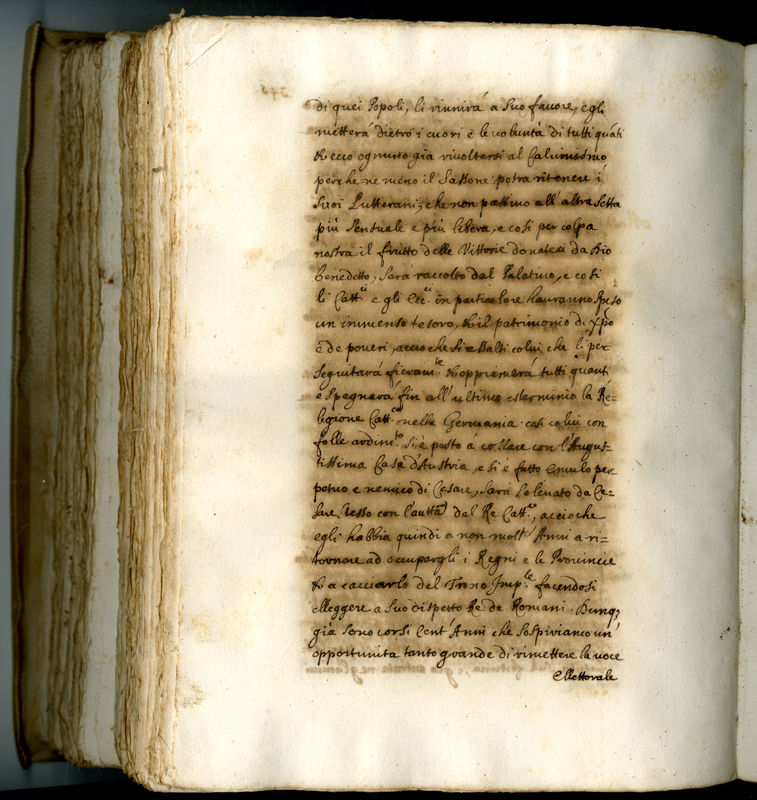 di quei Popoli, li riunirà a suo favore, e gli
metterá dietro i cuori e le voluntà di tutti quáti
& ecco ognuno già rivoltersi al Calvinismo
perche ne meno il Sassone potra ritenere i
suoi Lutterani, che non passino all'altra setta
più sensuale e più libera, e cosi per colpa
nostra il frutto delle Vittorie donateci da Dio
benedetto, sará raccolto dal Palatino, e cosi
li Catt.ci e gli Ecc.ci in particolare hauranno speso
un immenso tesoro, & il patrimonio di Xpo
e de poueri, accioche si essalti colui che li per
seguitará fieram.te & opprimerá tutti quanti
e spegnerá fin all'ultimo esterminio la Re=
legione Catt.ca nella Germania. cosi colui con
folle ardim.to si è posto á collare con l'Augus=
tissima Casa d'Austria, e si è fatto emulo per
petuo e nemico di Cesare, sará solevato da Ce=
sare stesso con l'autta del Re Catt.co, accioche
egli habbia quindi a non molt'Anni a ri=
tornare ad occupargli i Regni e le Prouincie
& a cacciarlo del Trono Imp.le facendosi
elleggere a suo dispetto Re de Romani. Dunq3
già sono corsi Cent'Anni che sospiriamo un'
opportunita tanto grande di rimettere la uoce
Ellettorale